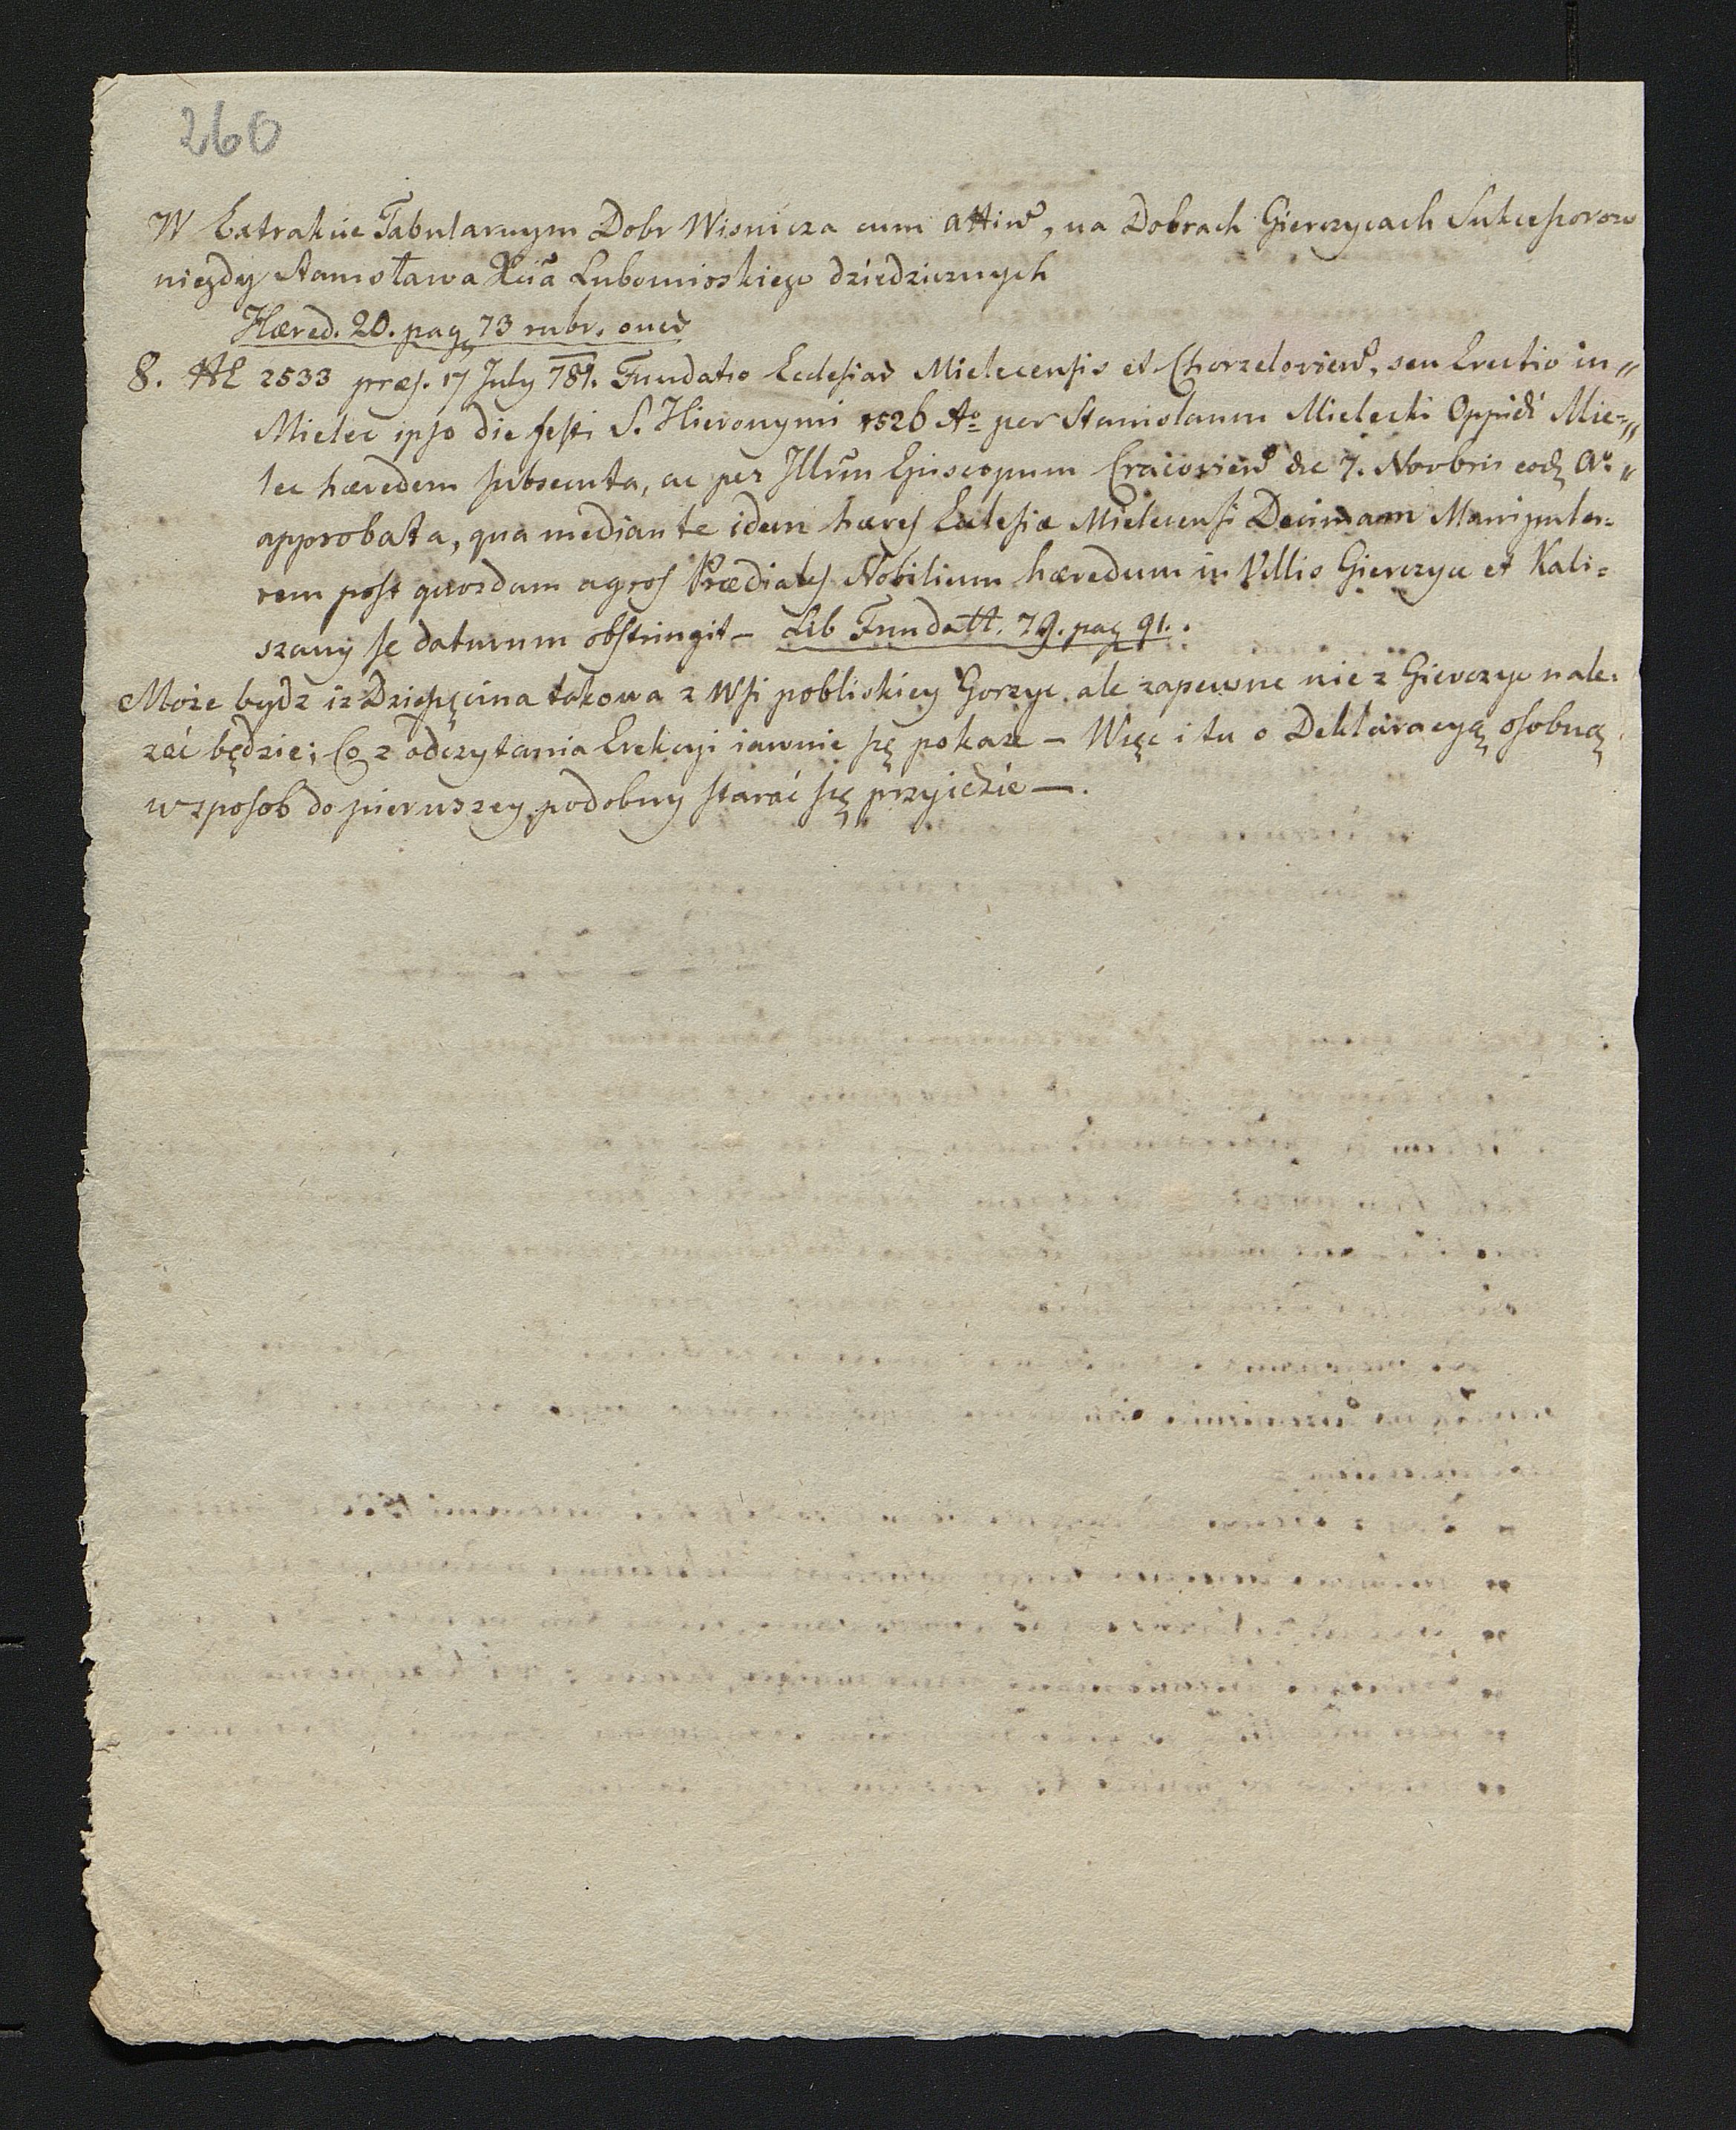 260
W Extrakcie Tabularnym Dobr Wisnicza cum attin̄, na Dobrach Gierczycach Sukceſsorow
niegdy Stanisława Xcia Lubomirskiego dziedzicznych
Hæred. 20. pag 73 rubr. oner
8. Ad 2533 præſ. 17 July 781. Fundatio Ecclesiar Mielecenſis et Chorzelovien̄, seu Erectio in„
Mielec ipſo die feſti S. Hieronymi 1526 Aō per Stanislaum Mielecki Oppidi Mie=„
lec hæredem ſubsecuta, ac per Jllm̄ Episcopum Cracovien̄ de 7. Novbris eod Aō „
approbata, qua mediante idem hæreſ Ecclesiæ Mielecenſi Decimam Manipula=
rem poſt quosdam agroſ Prædialeſ Nobilium hæredum in Villis Gierczyce et Kali=
szany ſe daturum obſtringit – Lib Fundatt. 79. pag 91.
Może bydz iż Dzieſięcina takowa z Wſi pobliskiey Gorzyc, ale zapewne nie z Gierczyc nale=
żać będzie; Co z odczytania Erekcyi iawnie ſię pokaże – Więc i tu o Deklaracyą oſobną
w spoſob do pierwszey podobny ſtarać ſię przyidzie –.